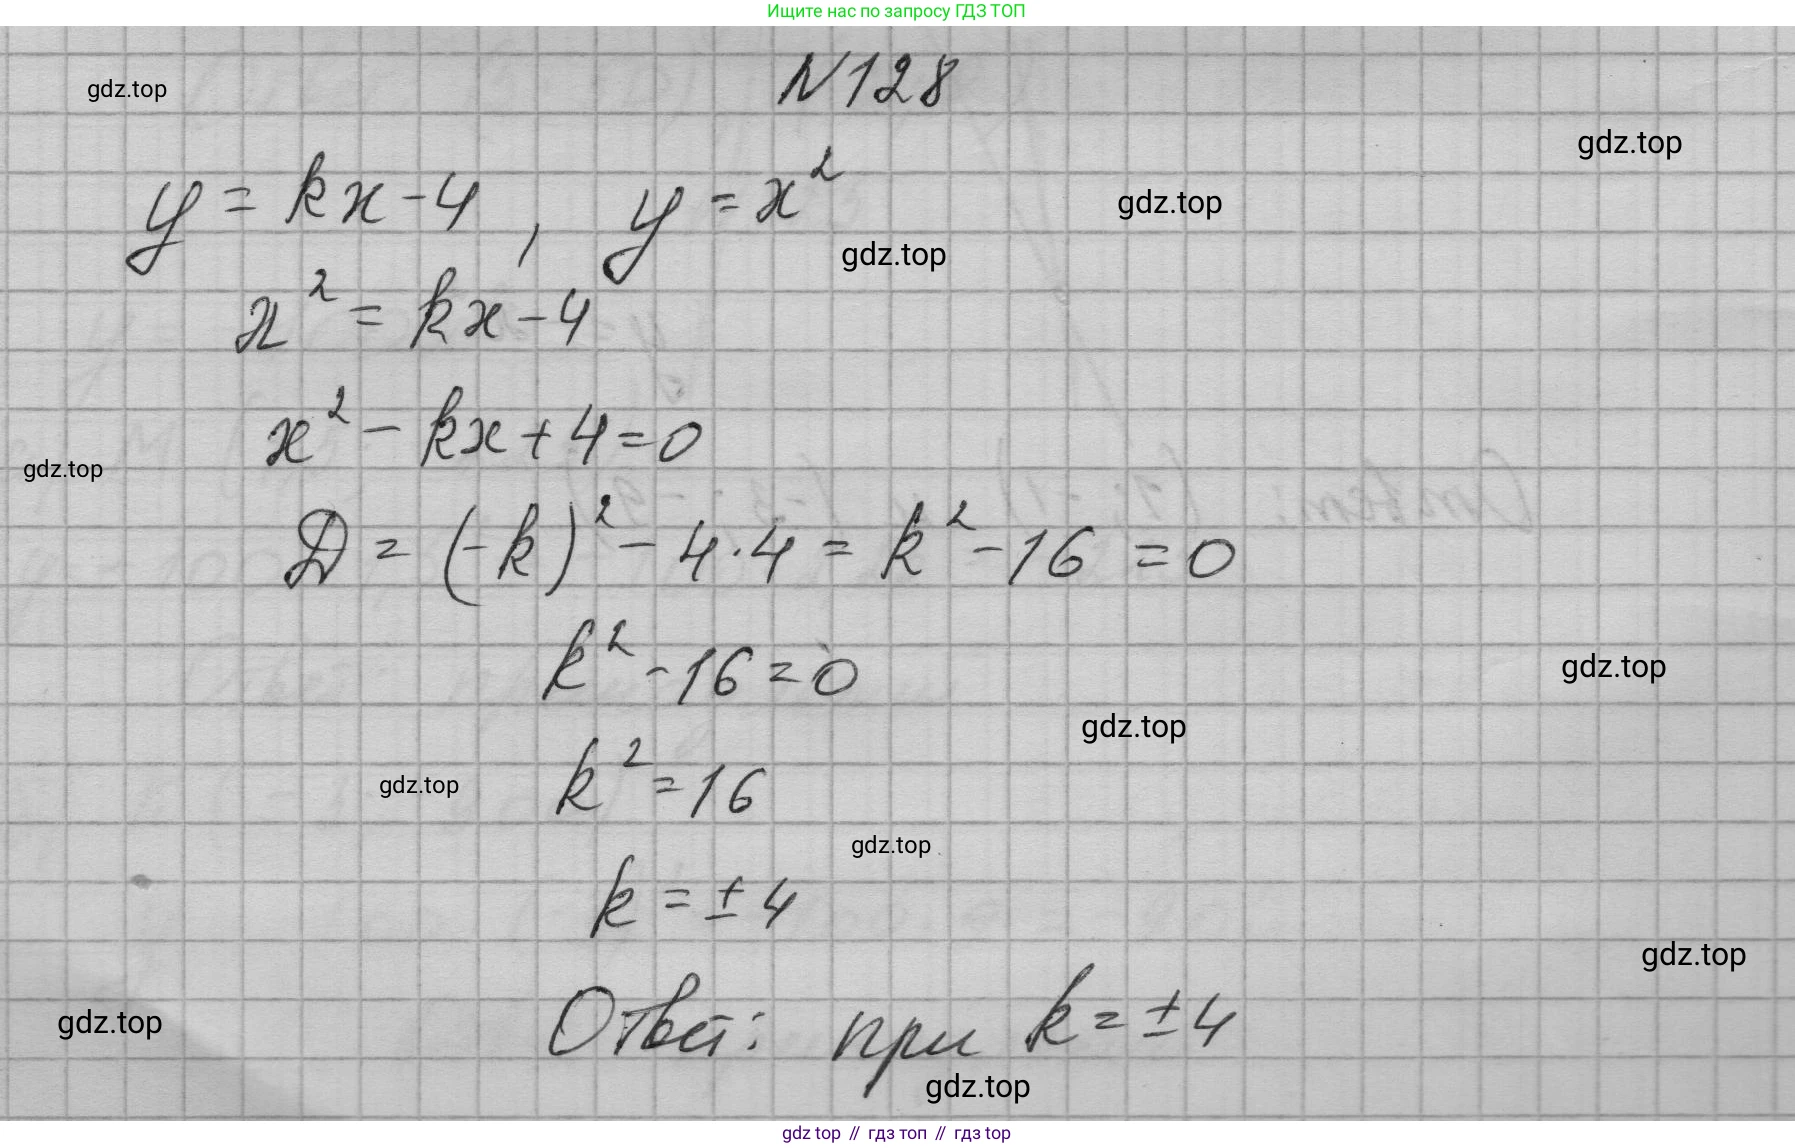 Ищите нас по запросу ГДЗ ТОП
N128
gdz.top
gdz.top
y = kx - 4, y = x²
gdz.top
gdz.top
x² = kx - 4
x² - kx + 4 = 0
gdz.top
D = (-k)² - 4·4 = k² - 16 = 0
k² - 16 = 0
gdz.top
gdz.top
k² = 16
gdz.top
gdz.top
k = ± 4
gdz.top
Ответ: при k = ± 4
gdz.top
gdz.top
gdz top // гдз топ // гдз top